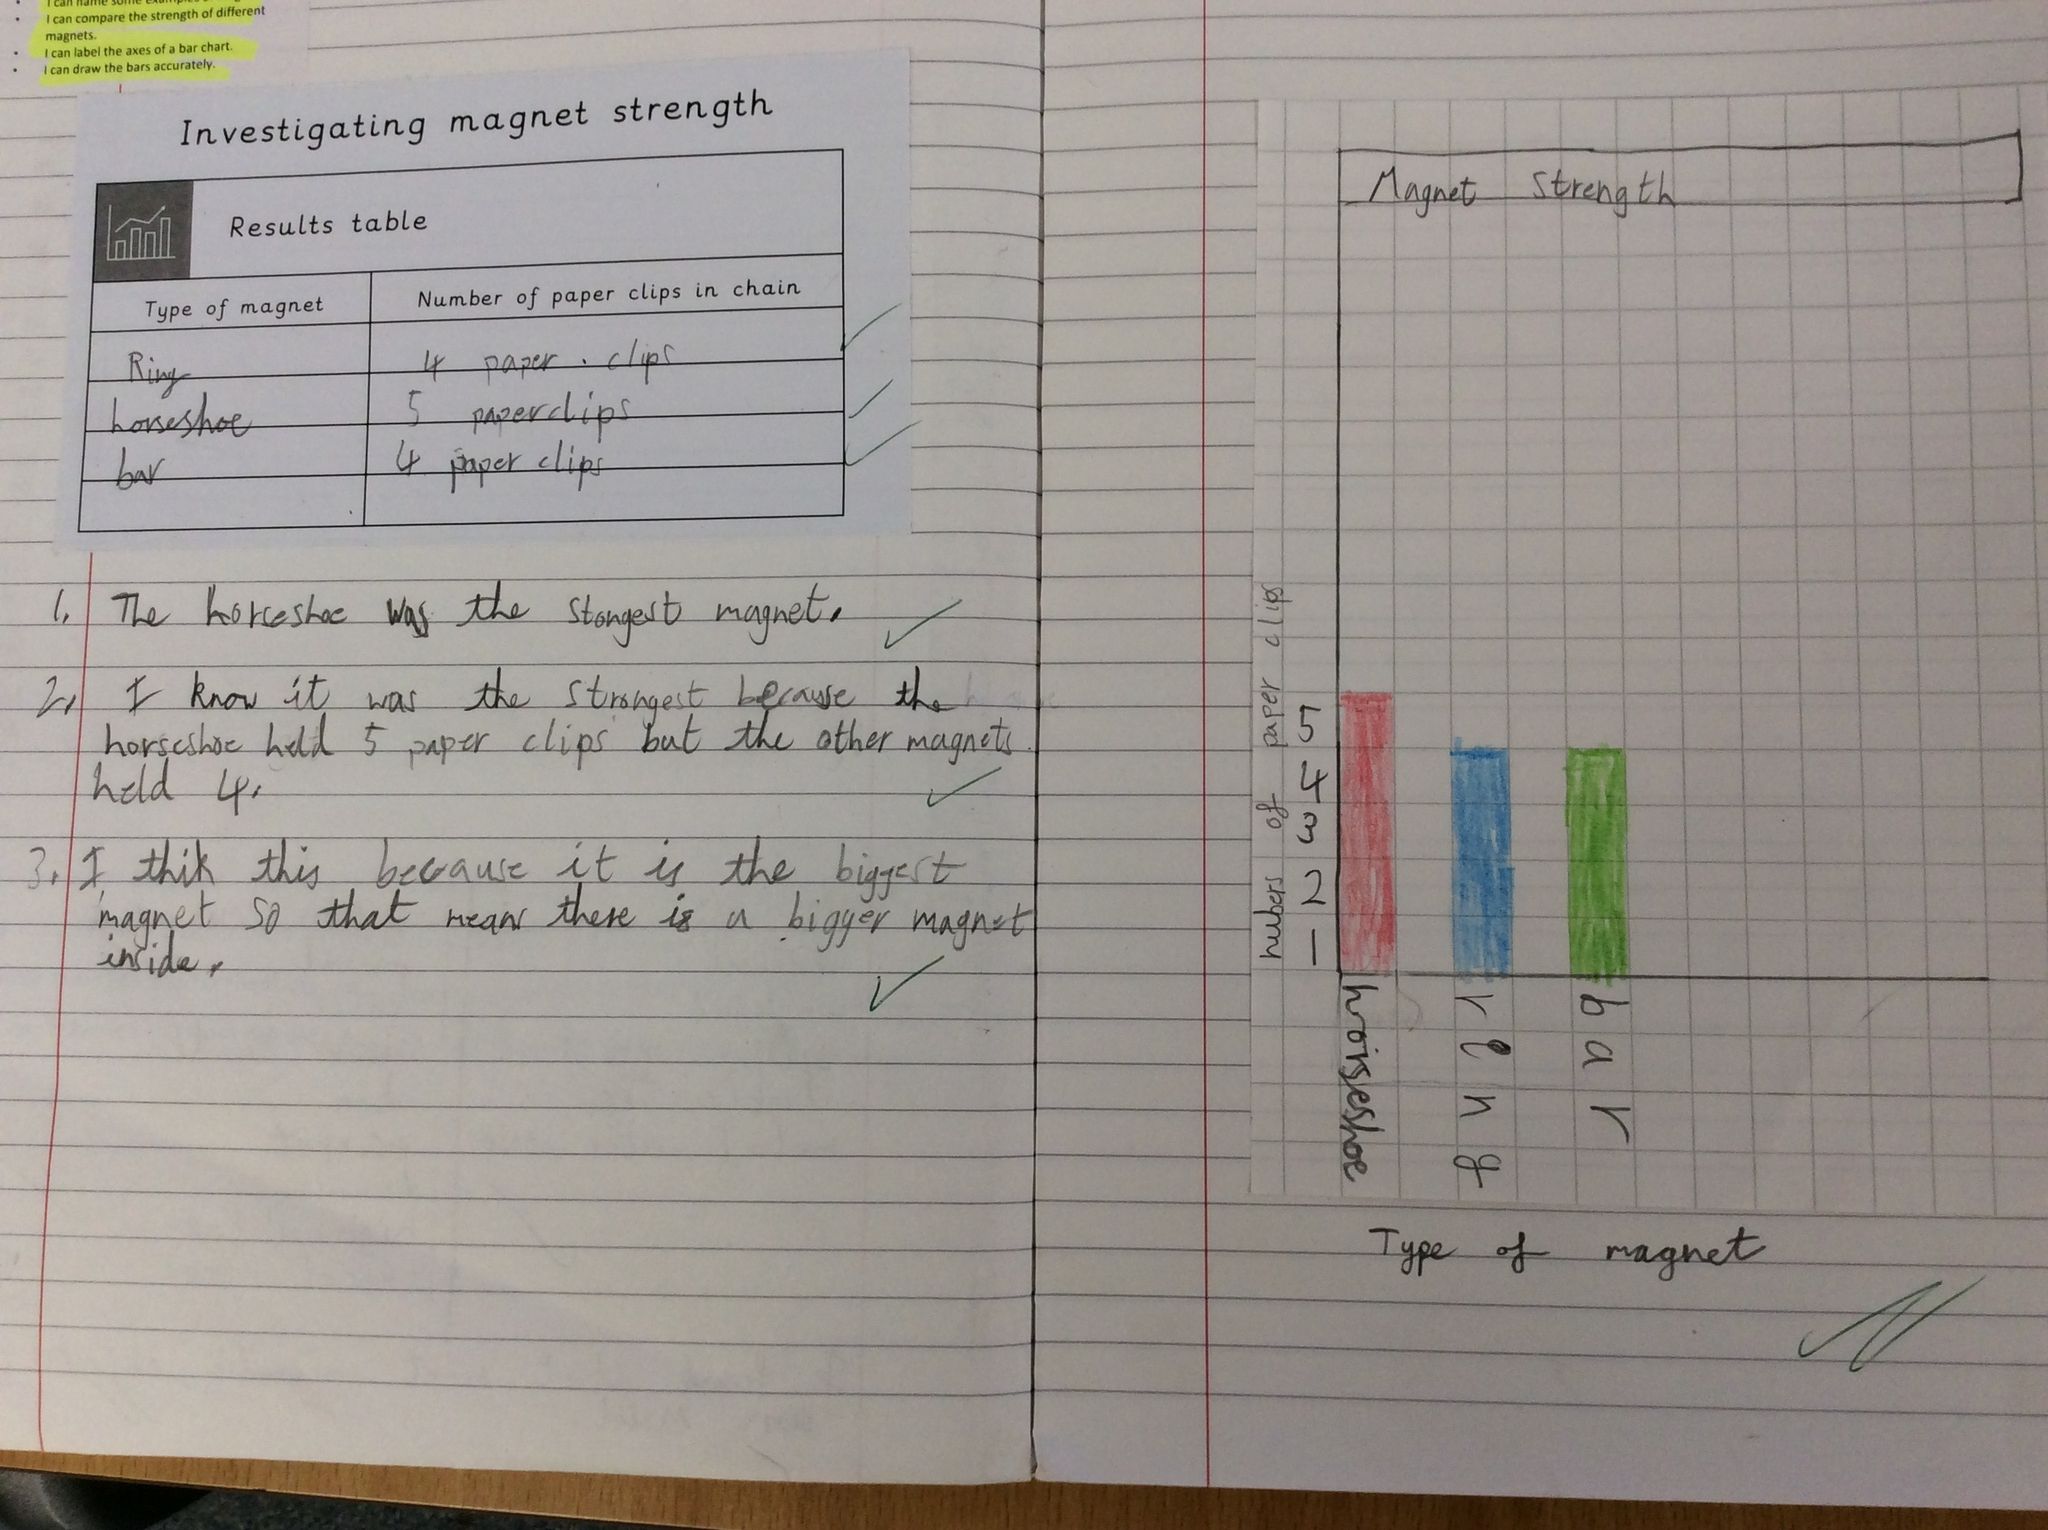 I can compare the strength of different
magnets.
I can label the axes of a bar chart.
I can draw the bars accurately.
Investigating magnet strength
Results table
Type of magnet Number of paper clips in chain
Ring 4 paper . clips
horseshoe 5 paperclips
bar 4 paper clips
1. The horceshoe was the stongest magnet.
2. I know it was the strongest because the
horseshoe held 5 paper clips but the other magnets
held 4.
3. I thik this because it is the biggest
magnet so that means there is a bigger magnet
inside.
Magnet Strength
nubers of paper clips
5
4
3
2
1
hroiseshoe
ring
bar
Type of magnet